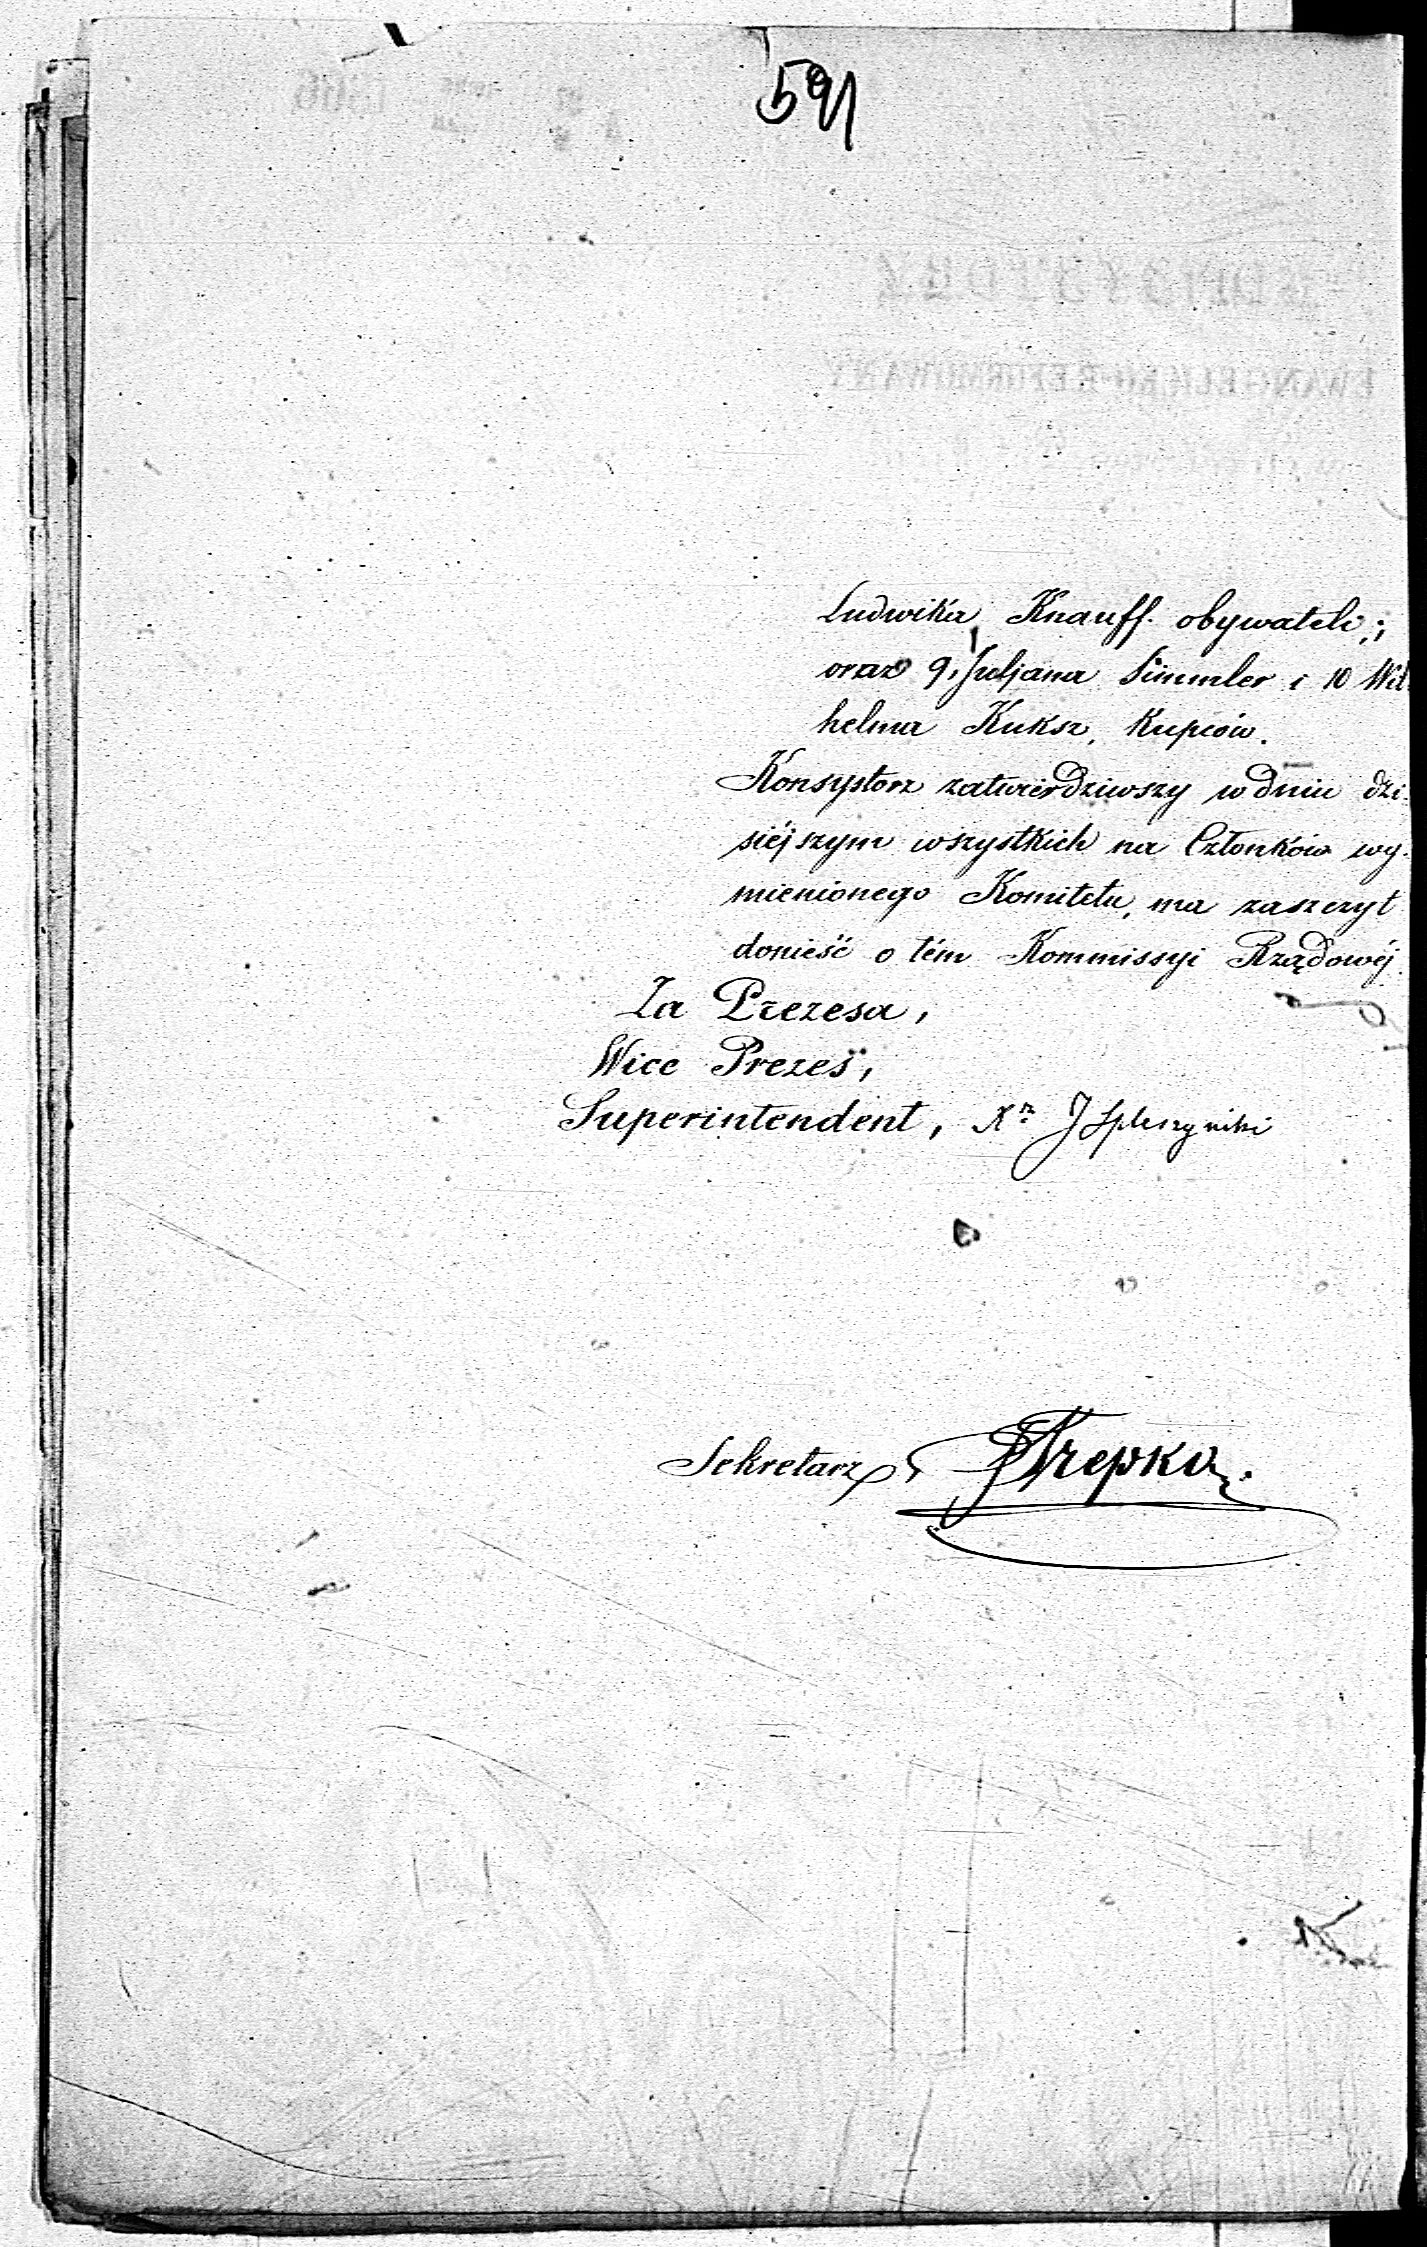 591
Ludwika Knauff. obywateli;
oraz 9, Juljana Simmler i 10 Wil
helma Kuksz, Kupców.
Konsystorz zatwierdziwszy w dniu dzi-
siéjszym wszystkich na Członków wy-
mienionego Komitetu, ma zaszczyt
donieść o tém Kommissyi Rządowéj.
Za Prezesa,
Wice Prezes,
Superintendent, Xdz J Spleszyński
Sekretarz Trepka.